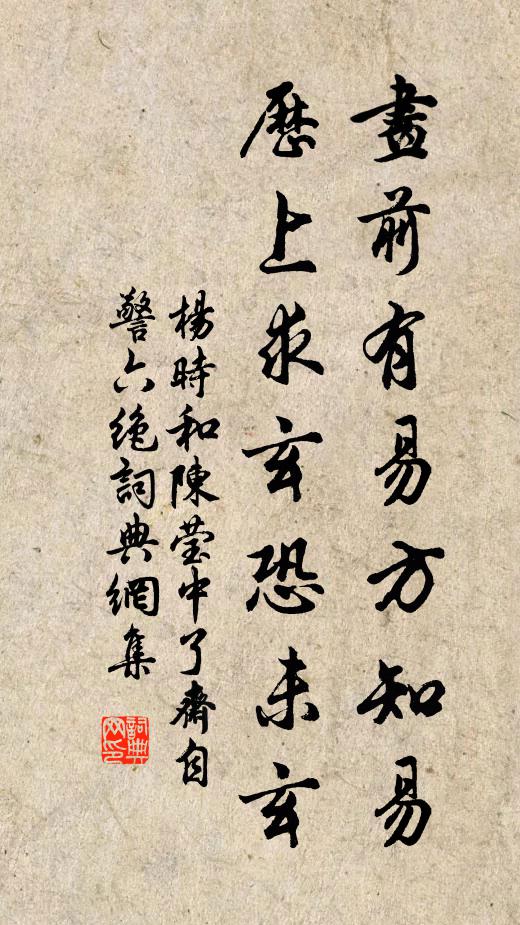 畫前有易方知易
歷上求玄恐未玄
楊時和陳瑩中了齋自
警六絕詞典網集
詞典網印